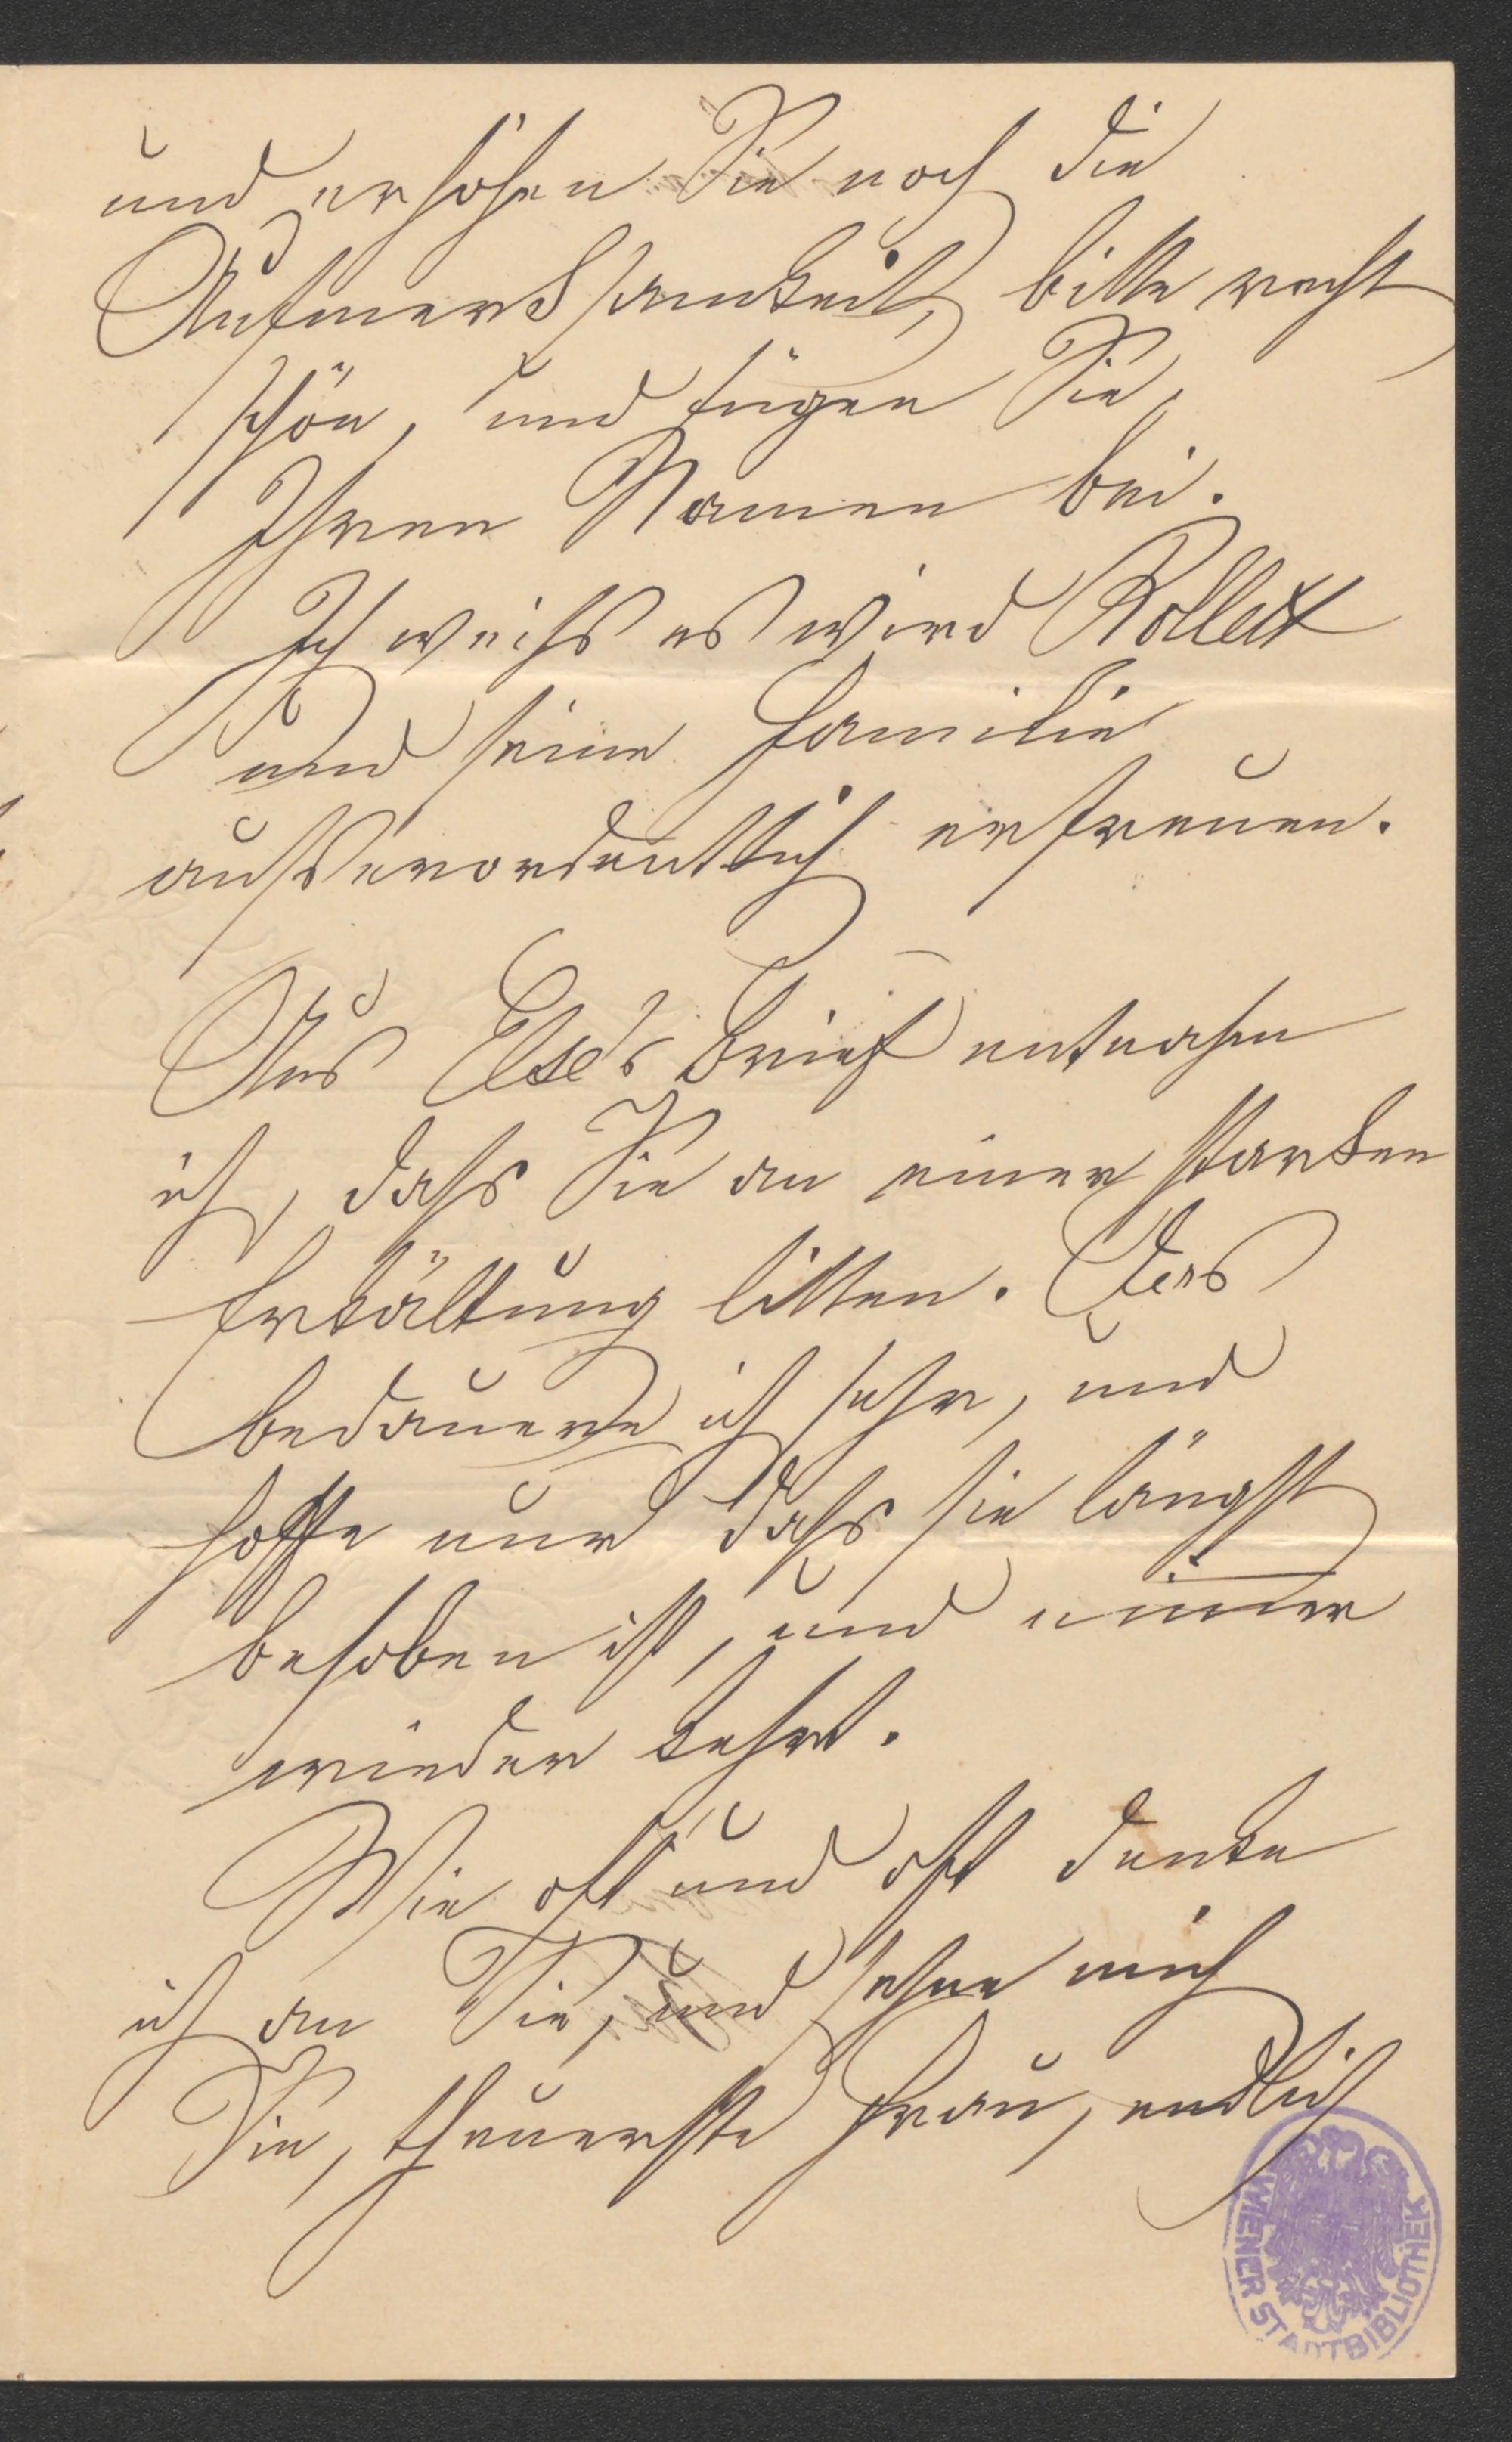 und erhöhen Sie noch die
Aufmerksamkeit, bitte recht
schön, und fügen Sie
Ihren Namen bei.
Ich weiß es wird Rollett
und seine Familie
außerordentlich erfreuen.
Aus Else's Brief entnahm
ich, daß Sie an einer starken
Erkältung litten. Das
bedauere ich sehr, und
hoffe nur daß sie längst
behoben ist, und nimer
wieder kehrt.
Wie oft und oft denke
ich an Sie, und sehne mich
Sie, theuerste Frau, endlich
WIENER STADTBIBLIOTHEK